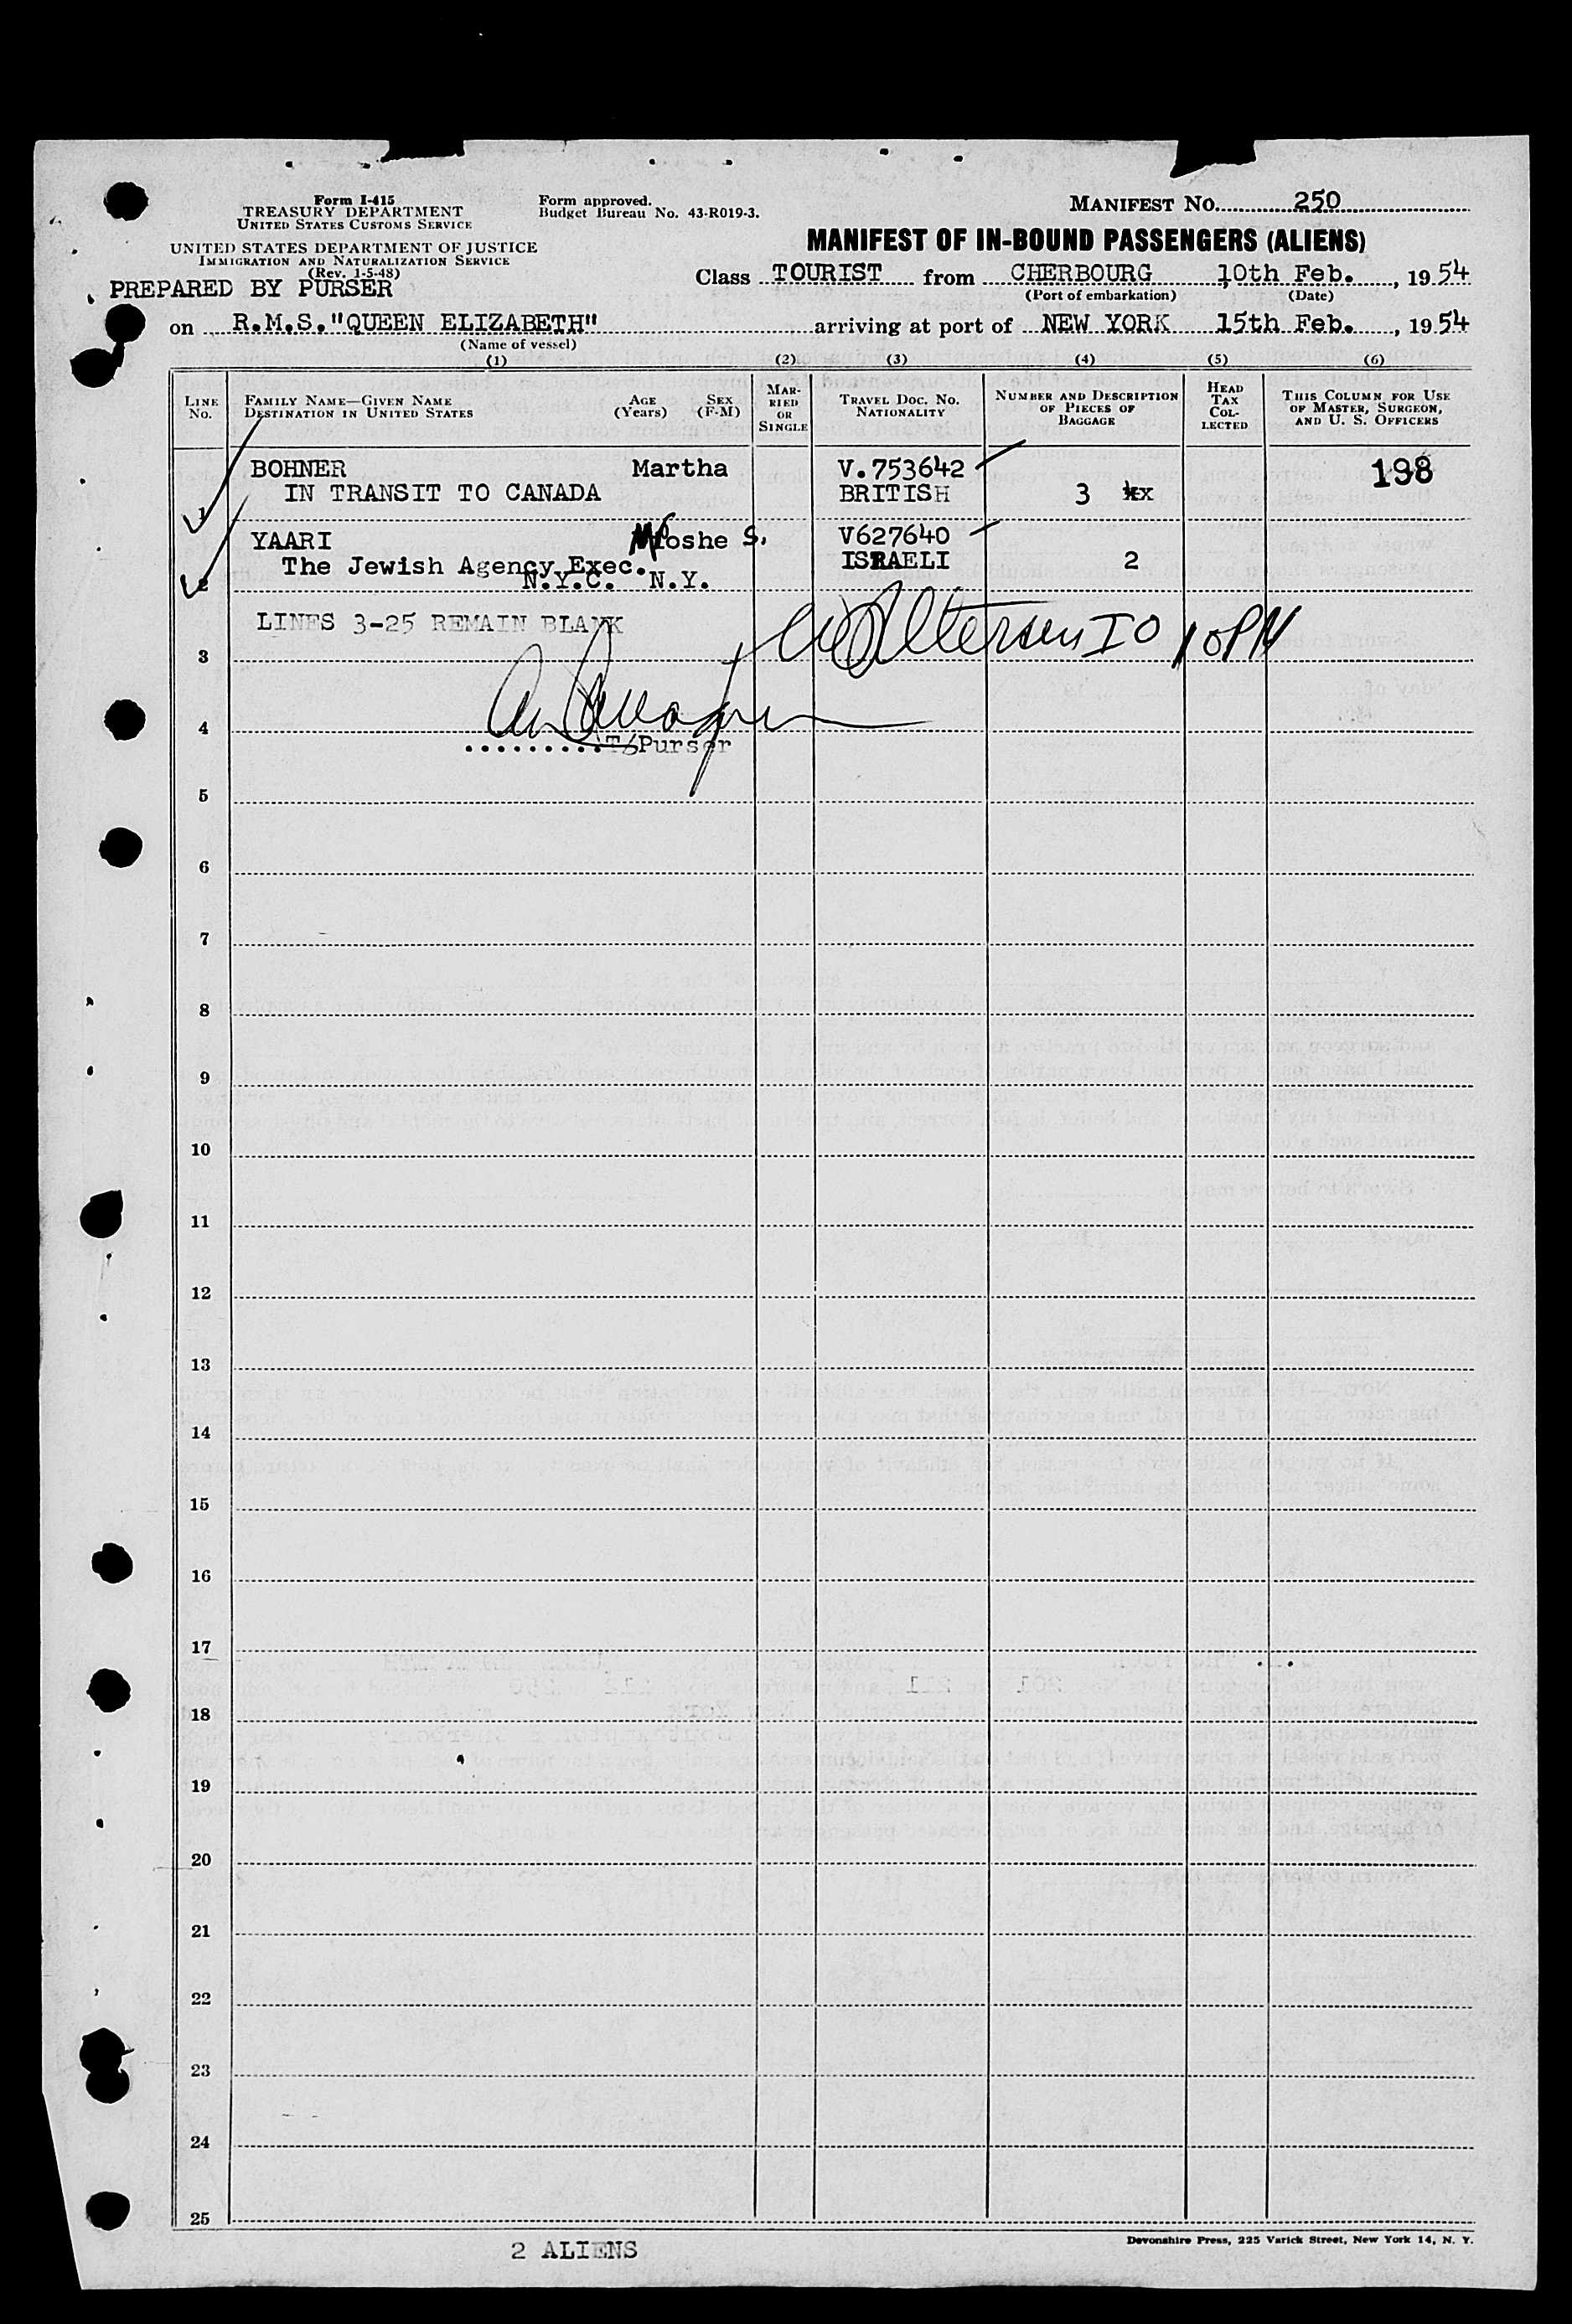 Form I-415
TREASURY DEPARTMENT
UNITED STATES CUSTOMS SERVICE
UNITED STATES DEPARTMENT OF JUSTICE
IMMIGRATION AND NATURALIZATION SERVICE
(Rev. 1-5-48)
PREPARED BY PURSER
Form approved.
Budget Bureau No. 43-R019-3.
MANIFEST NO. 250
MANIFEST OF IN-BOUND PASSENGERS (ALIENS)
Class TOURIST from CHERBOURG 10th Feb., 1954
(Port of embarkation) (Date)
on R.M.S."QUEEN ELIZABETH" arriving at port of NEW YORK 15th Feb., 1954
(Name of vessel)
(1) (2) (3) (4) (5) (6)
LINE NO. FAMILY NAME—GIVEN NAME DESTINATION IN UNITED STATES AGE (Years) SEX (F-M) MARRIED OR SINGLE TRAVEL DOC. NO. NATIONALITY NUMBER AND DESCRIPTION OF PIECES OF BAGGAGE HEAD TAX COLLECTED THIS COLUMN FOR USE OF MASTER, SURGEON, AND U. S. OFFICERS
BOHNER Martha V.753642 198
1 IN TRANSIT TO CANADA BRITISH 3
YAARI Moshe S. V627640
The Jewish Agency Exec. ISRAELI 2
2 N.Y.C. N.Y.
LINES 3-25 REMAIN BLANK
3
4
T/Purser
5
6
7
8
9
10
11
12
13
14
15
16
17
18
19
20
21
22
23
24
25
2 ALIENS
Devonshire Press, 225 Varick Street, New York 14, N. Y.